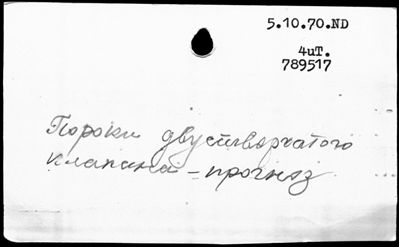 5.10.70.ND
4uT.
789517
Пороки двустворчатого
клапана – прогноз